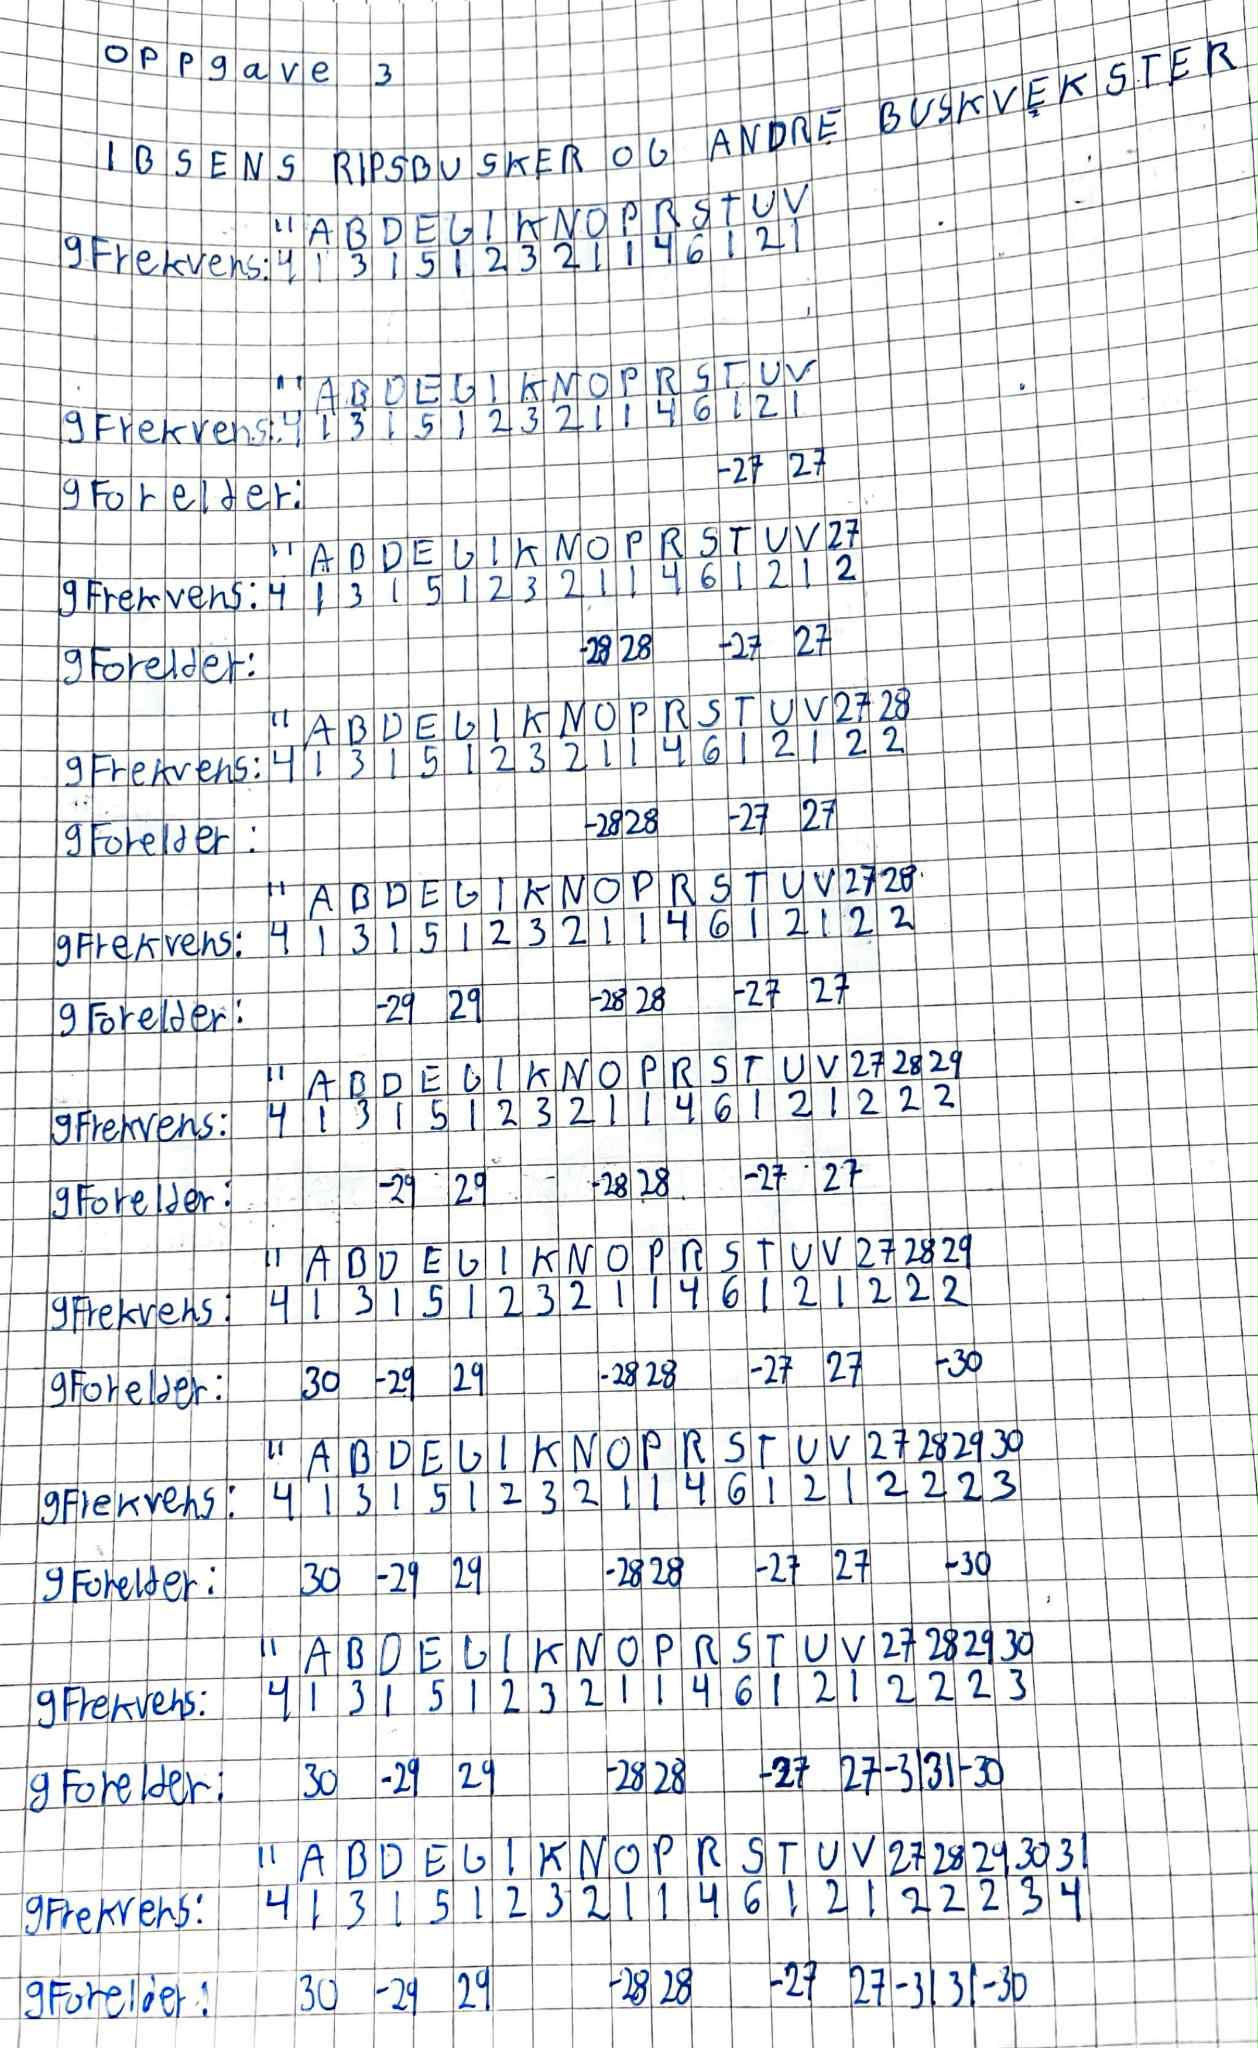 Oppgave 3
IBSENS RIPSBUSKER OG ANDRE BUSKVEKSTER
" A B D E G I K N O P R S T U V
gFrekvens: 4 1 3 1 5 1 2 3 2 1 1 4 6 1 2 1
" A B D E G I K N O P R S T U V
gFrekvens: 4 1 3 1 5 1 2 3 2 1 1 4 6 1 2 1
gForelder: -27 27
" A B D E G I K N O P R S T U V 27
gFrekvens: 4 1 3 1 5 1 2 3 2 1 1 4 6 1 2 1 2
gForelder: -28 28 -27 27
" A B D E G I K N O P R S T U V 27 28
gFrekvens: 4 1 3 1 5 1 2 3 2 1 1 4 6 1 2 1 2 2
gForelder: -28 28 -27 27
" A B D E G I K N O P R S T U V 27 28
gFrekvens: 4 1 3 1 5 1 2 3 2 1 1 4 6 1 2 1 2 2
gForelder: -29 29 -28 28 -27 27
" A B D E G I K N O P R S T U V 27 28 29
gFrekvens: 4 1 3 1 5 1 2 3 2 1 1 4 6 1 2 1 2 2 2
gForelder: -29 29 -28 28 -27 27
" A B D E G I K N O P R S T U V 27 28 29
gFrekvens: 4 1 3 1 5 1 2 3 2 1 1 4 6 1 2 1 2 2 2
gForelder: 30 -29 29 -28 28 -27 27 -30
" A B D E G I K N O P R S T U V 27 28 29 30
gFrekvens: 4 1 3 1 5 1 2 3 2 1 1 4 6 1 2 1 2 2 2 3
gForelder: 30 -29 29 -28 28 -27 27 -30
" A B D E G I K N O P R S T U V 27 28 29 30
gFrekvens: 4 1 3 1 5 1 2 3 2 1 1 4 6 1 2 1 2 2 2 3
gForelder: 30 -29 29 -28 28 -27 27 -31 31 -30
" A B D E G I K N O P R S T U V 27 28 29 30 31
gFrekvens: 4 1 3 1 5 1 2 3 2 1 1 4 6 1 2 1 2 2 2 3 4
gForelder: 30 -29 29 -28 28 -27 27 -31 31 -30